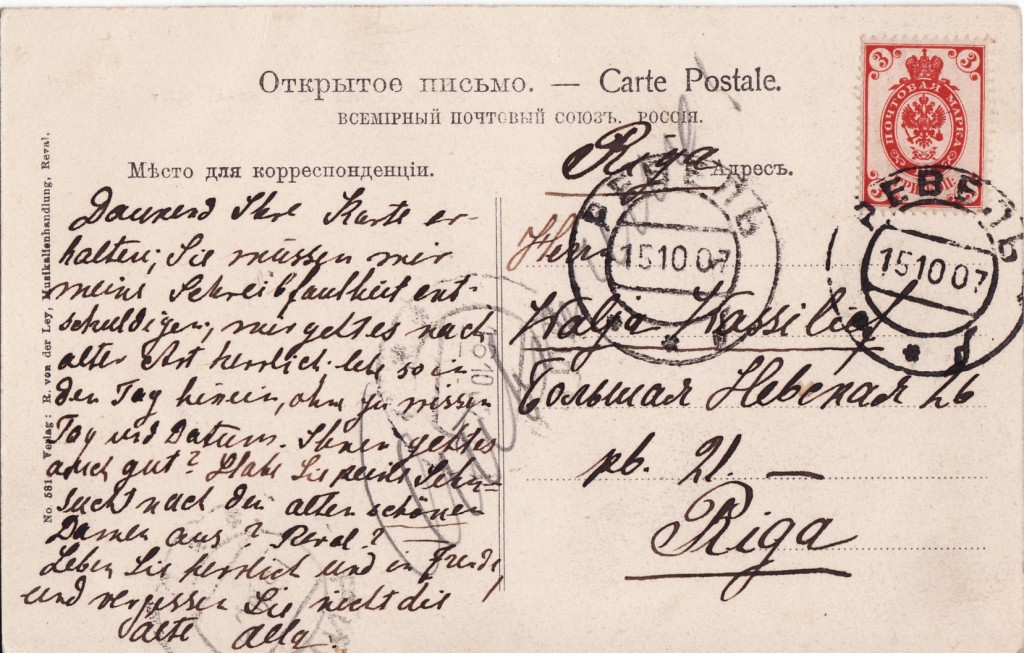 Открытое письмо. — Carte Postale.
ВСЕМІРНЫЙ ПОЧТОВЫЙ СОЮЗЪ. РОССІЯ.
Мѣсто для корреспонденціи.
Адресъ.
3 3
ПОЧТОВАЯ МАРКА
РЕВЕЛЬ
15 10 07
РЕВЕЛЬ
15 10 07
No. 581. Verlag: R. von der Ley, Musikalienhandlung, Reval.
Dausend Ihre Karte er-
halten; Sie müssen mir
meine Schreibfaulheit ent-
schuldigen; mir geht es nach
alter Art herrlich. lebe so in
den Tag hinein, ohne zu wissen
Tag und Datum. Ihnen geht es
auch gut? Habe Sie Sehn-
sucht nach den alten schönen
Damen aus? Reval?
Leben Sie herrlich und in Freude,
und vergessen Sie nicht die
alte Alla.
Riga
Herrn
Kolja Kassilieff
Большая Невская 26
кв. 21. —
Riga